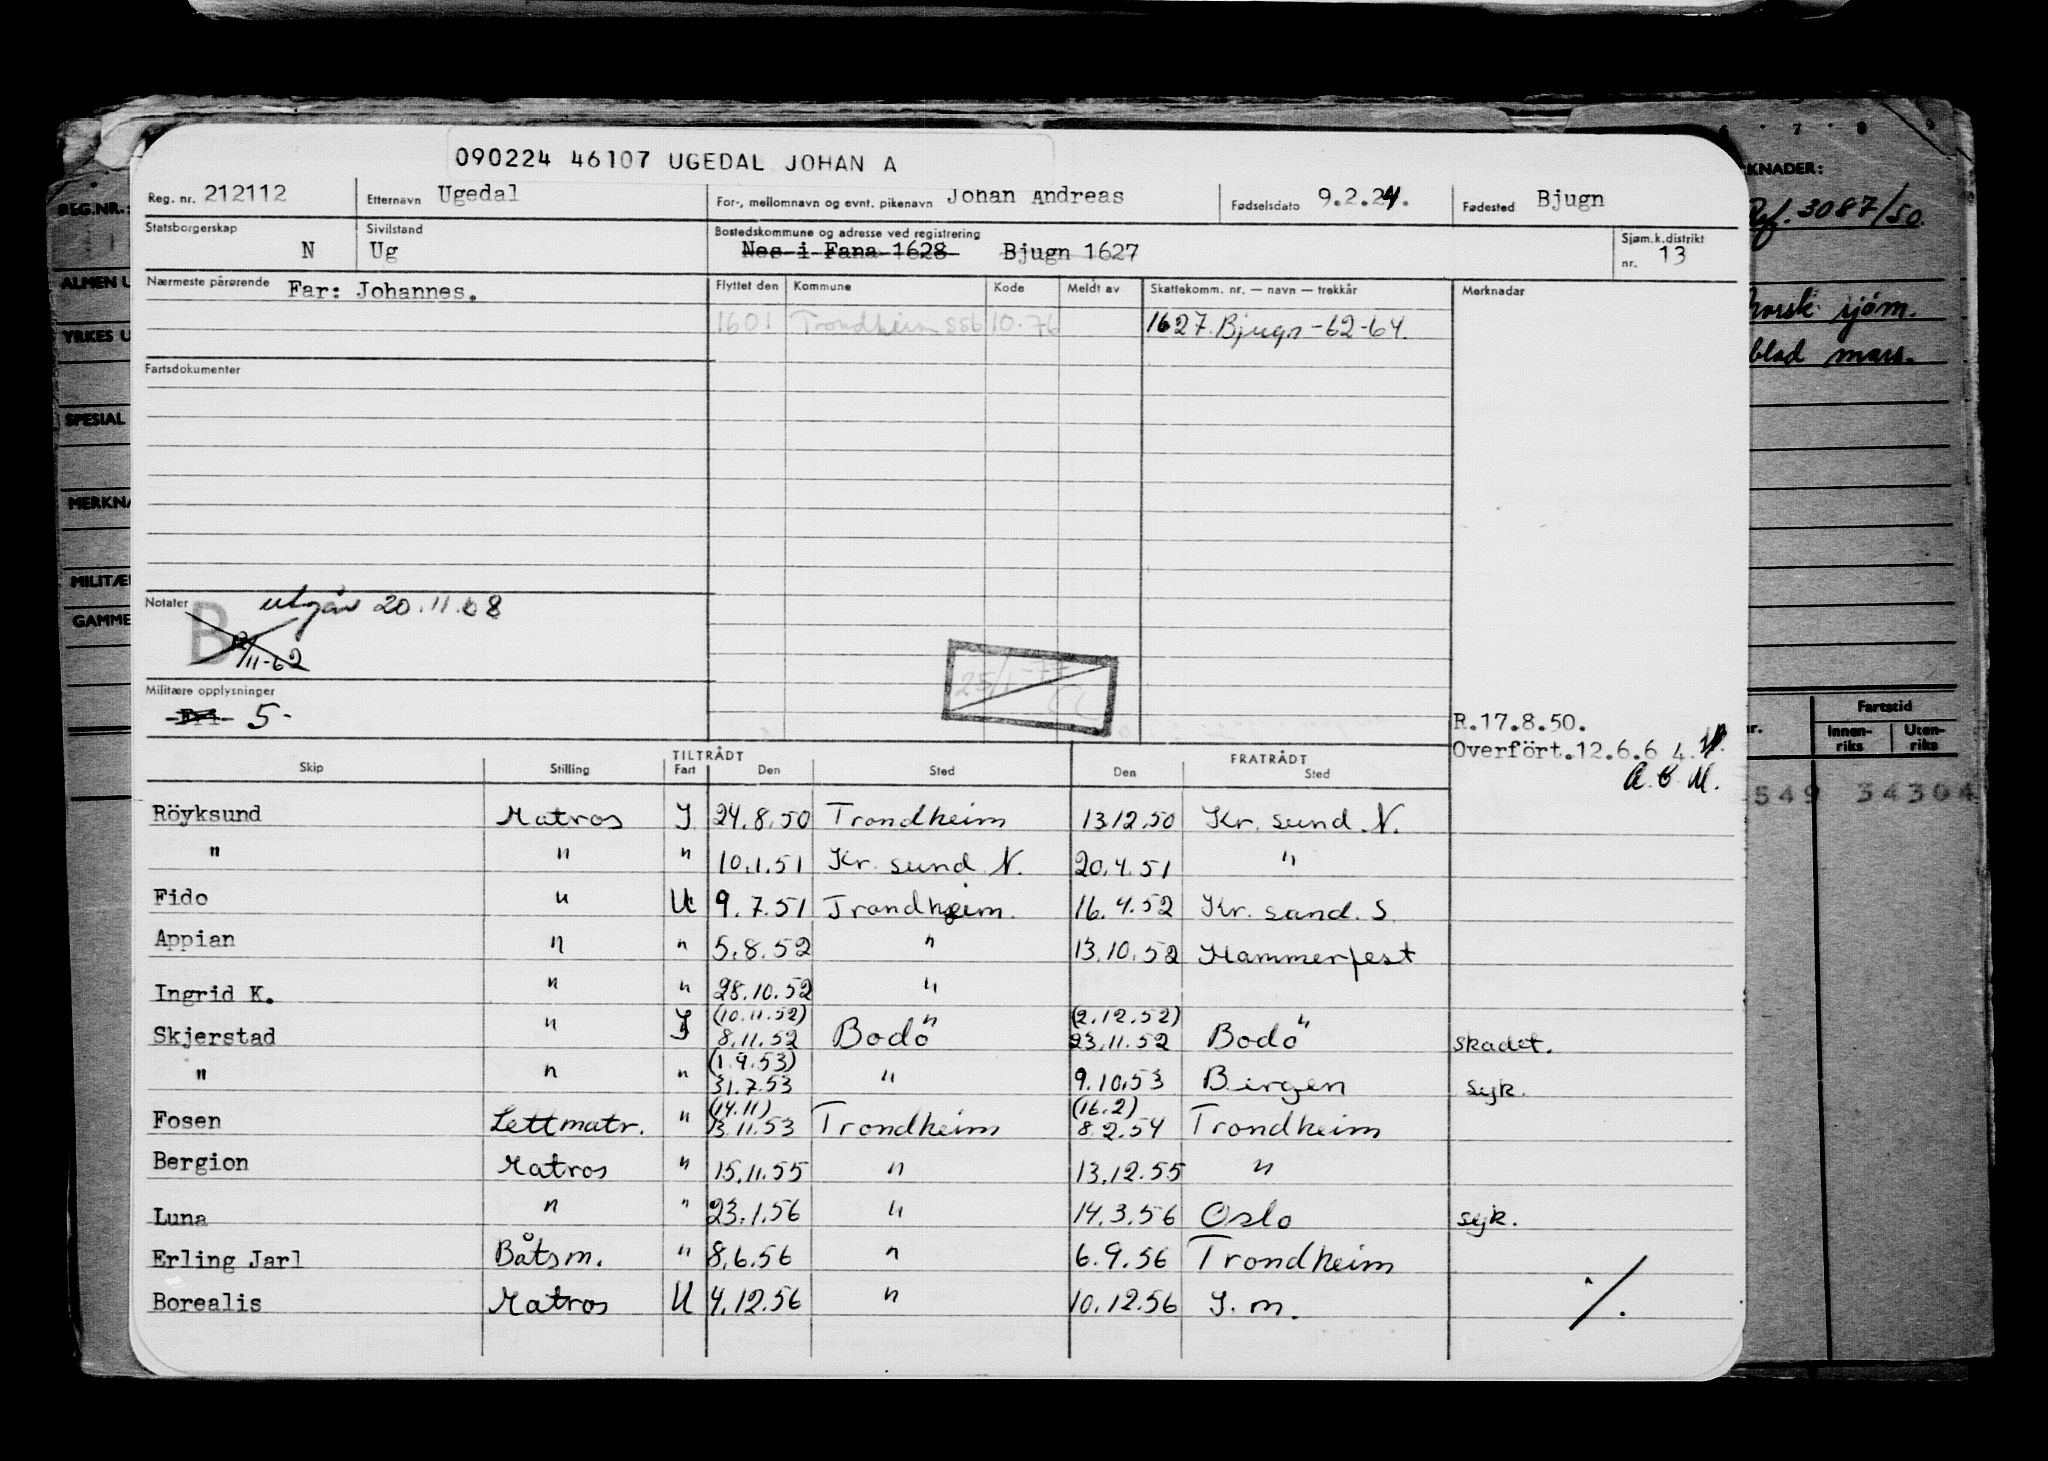 090224 46107 UGEDAL JOHAN A
Reg. nr. 212112 Etternavn Ugedal For-, mellomnavn og evnt. pikenavn Johan Andreas Fødselsdato 9.2.24. Fødested Bjugn
Statsborgerskap N Sivilstand Ug Bostedskommune og adresse ved registrering Nes i Fana 1628 Bjugn 1627 Sjøm.k.distrikt nr. 13
Nærmeste pårørende Far: Johannes. Flyttet den Kommune Kode Meldt av Skattekomm. nr. — navn — trekkår Merknader
1601 Trondheim SSB 10.76 1627 Bjugn -62-64.
Fartsdokumenter
Notater B utgår 20.11.68
/11-62
Militære opplysninger
Fri 5-
25/1-77
R.17.8.50.
Overfört.12.6.6 4.
TILTRÅDT FRATRÅDT
Skip Stilling Fart Den Sted Den Sted
Röyksund Matros I 24.8.50 Trondheim 13.12.50 Kr. sund. N.
" " " 10.1.51 Kr. sund N. 20.4.51 "
Fido " U 9.7.51 Trondheim. 16.4.52 Kr. sand. S
Appian " " 5.8.52 " 13.10.52 Hammerfest
Ingrid K. " " 28.10.52 "
Skjerstad " I (10.11.52) 8.11.52 Bodö " (2.12.52) 23.11.52 Bodö " skadet.
" " " (1.9.53) 31.7.53 " 9.10.53 Bergen syk.
Fosen Lettmatr. " (14.11) 13.11.53 Trondheim (16.2) 8.2.54 Trondheim
Bergion Matros " 15.11.55 " 13.12.55 "
Luna " " 23.1.56 " 14.3.56 Oslo syk.
Erling Jarl Båtsm. " 8.6.56 " 6.9.56 Trondheim
Borealis Matros U 4.12.56 " 10.12.56 I. m. ·/.
REG.NR.:
ALMEN U
YRKES U
SPESIAL
MERKNA
MILITÆR
GAMME
7 8 9
KNADER:
Ref. 3087/50.
norsk sjøm.
blad mars.
Fartstid
nr. Innen-riks Uten-riks
549 34304